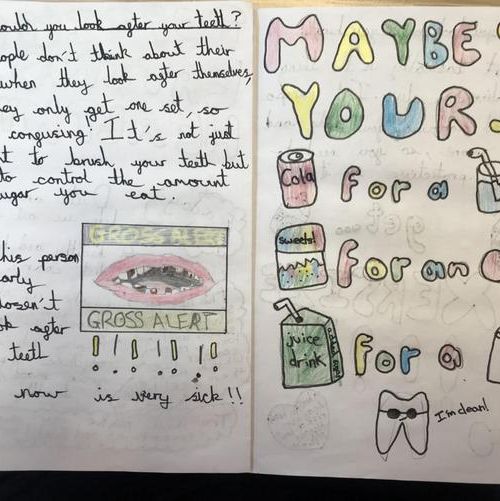 ould you look after your teeth?
ople don't think about their
when they look after themselves,
hey only get one set, so
congusing! It's not just
nt to brush your teeth but
to control the amount
sugar you eat.
his person
early
dosen't
ok after
teeth
GROSS ALERT
GROSS ALERT
! ! ! ! ! !
now is very sick!!
MAYBE
YOUR
Cola for a
sweets! for an
juice drink for a
I'm clean!